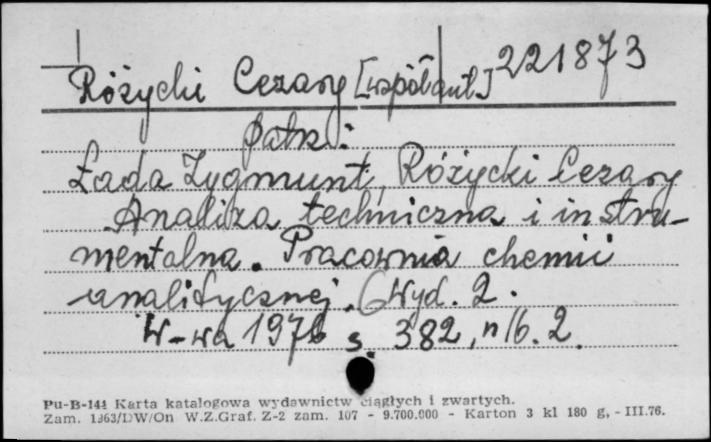 Różycki Cezary [współaut.] 221873
patrz:
Łada Zygmunt, Różycki Cezary
Analiza techniczna i instru-
mentalna. Pracownia chemii
analitycznej. Wyd. 2.
W-wa s. 382, nlb. 2.
Pu-B-144 Karta katalogowa wydawnictw ciągłych i zwartych.
Zam. 1363/DW/On W.Z.Graf. Z-2 zam. 107 - 9.700.000 - Karton 3 kl 180 g, - III.76.